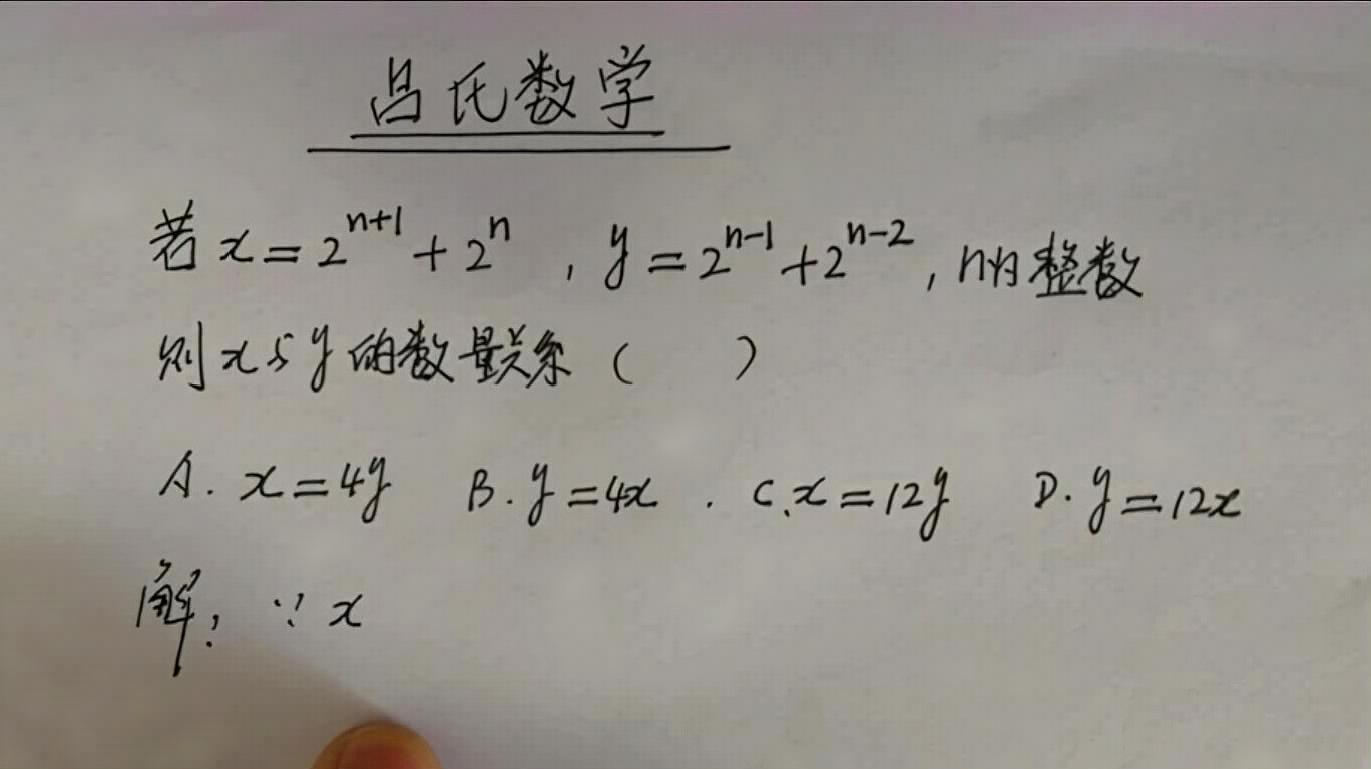 吕氏数学
若 x = 2^{n+1} + 2^n , y = 2^{n-1} + 2^{n-2} , n为整数
则 x 与 y 的数量关系 ( )
A. x = 4y B. y = 4x . C. x = 12y D. y = 12x
解: ∵ x